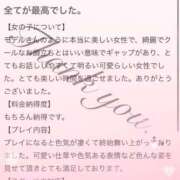 全てが最高でした。
【女の子について】
モデルさんのように本当に美しい女性で、綺麗でク
ールなお顔立ちとはいい意味でギャップがあり、と
てもお話ししやすくて明るい可愛らしい女性でし
た。とても楽しい時間を過ごせました。ありがとう
ございました。
【料金納得度】
もちろん納得です。
【プレイ内容】
プレイになると色気が凄くて終始舞い上がって
れました。可愛い仕草や色気ある表情など色んな姿を
Thank you.